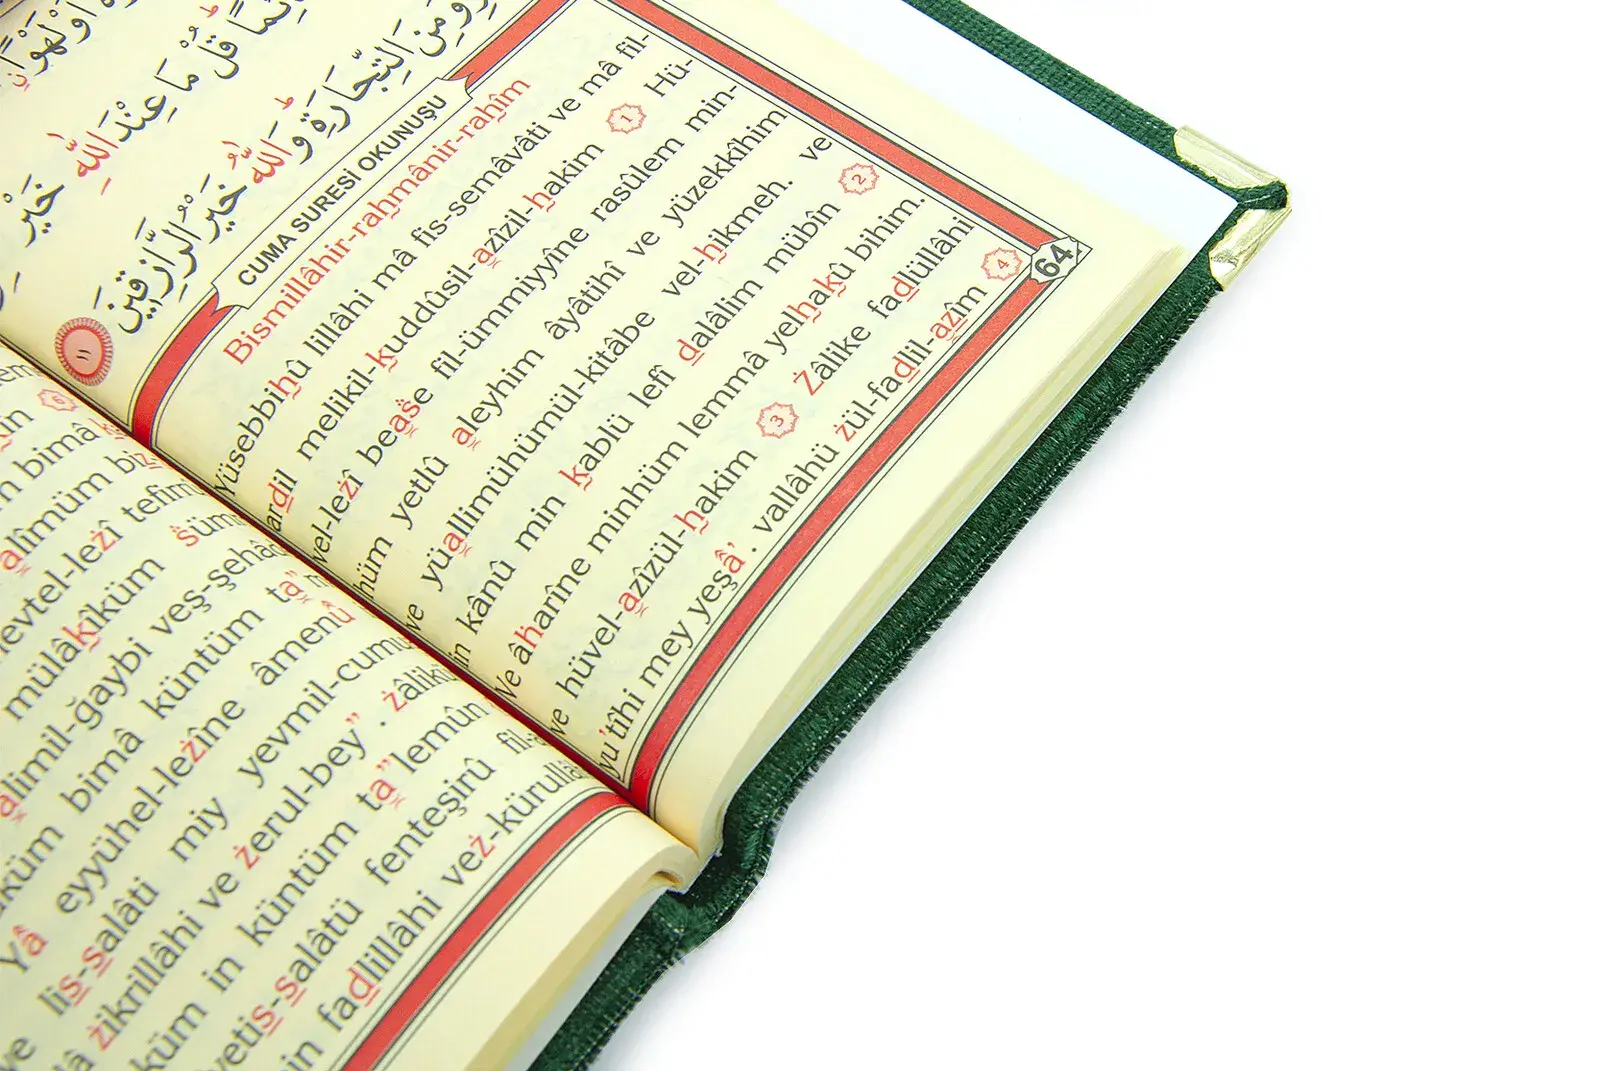 اَوْ لَهْوًا
قُلْ مَا عِنْدَ اللّٰهِ خَيْرٌ
وَمِنَ التِّجَارَةِ وَاللّٰهُ خَيْرُ الرَّازِقِينَ ١١
CUMA SURESİ OKUNUŞU
Bismillâhir-rahmânir-rahîm
Yüsebbihû lillâhi mâ fis-semâvâti ve mâ fil-
ardil melikil-kuddûsil-azîzil-hakim 1 Hü-
vel-lezî bease fil-ümmiyyîne rasûlem min-
hüm yetlû aleyhim âyâtihî ve yüzekkîhim
ve yüallimühümül-kitâbe vel-hikmeh. ve
in kânû min kablü lefî dalâlim mübîn 2
ve âharîne minhüm lemmâ yelhakû bihim.
ve hüvel-azîzül-hakim 3 Zâlike fadlüllâhi
yu'tîhi mey yeşâ'. vallâhü zül-fadlil-azîm 4
64
6
bimâ
alîmüm
tel-lezî
mülâkîküm sümm
alimil-ğaybi veş-şehâd
küm bimâ küntüm ta"m
Yâ eyyühel-lezîne âmenû
lis-salâti miy yevmil-cumu
zikrillâhi ve zerul-bey". zâlikü
küm in küntüm ta"lemûn
yetis-salâtü fenteşirû fil-
min fadlillâhi vez-kürullâ